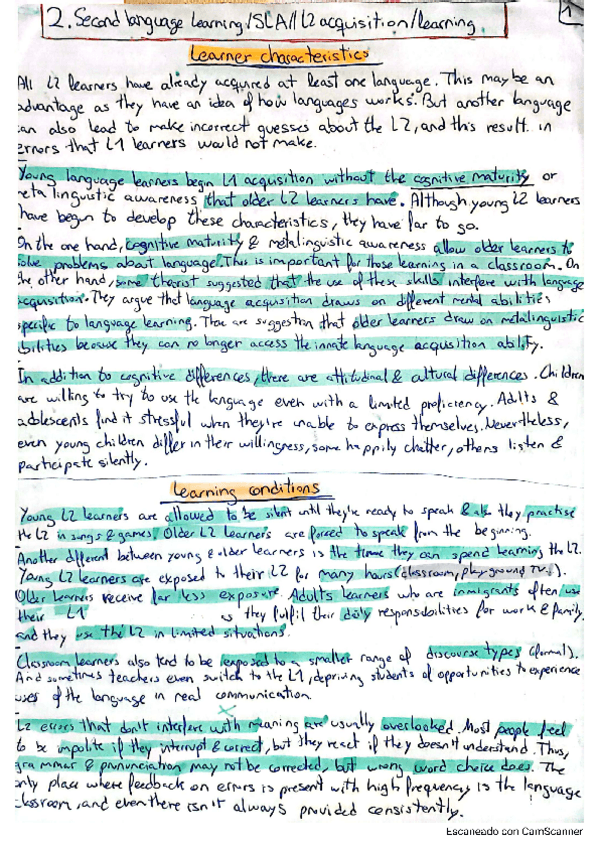 1
2. Second language learning/SLA/L2 acquisition/learning
Learner characteristics
All L2 learners have already acquired at least one language. This may be an
advantage as they have an idea of how languages works. But another language
can also lead to make incorrect guesses about the L2, and this result in
errors that L1 learners would not make.
Young language learners begin L1 acqusition without the cognitive maturity or
eta linguistic awareness that older L2 learners have. Although young L2 learners
have begun to develop these characteristics, they have far to go.
On the one hand, cognitive maturity & metalinguistic awareness allow older learners to
solve problems about language. This is important for those learning in a classroom. On
the other hand, some theorist suggested that the use of these skills interfere with language
acqusition. They argue that language acqusition draws on different mental abilities
specific to language learning. There are suggestion that older learners draw on metalinguistic
abilities because they can no longer access the innate language acqusition ability.
In addition to cognitive differences, there are attitudinal & cultural differences. Children
are willing to try to use the language even with a limited proficiency. Adults &
adolescents find it stressful when they're unable to express themselves. Nevertheless,
even young children differ in their willingness, some happily chatter, others listen &
participate silently.
Learning conditions
Young L2 learners are allowed to be silent until they're ready to speak & also they practise
the L2 in songs & games. Older L2 learners are forced to speak from the beginning.
Another different between young & older learners is the time they can spend learning the L2.
Young L2 learners are exposed to their L2 for many hours (classroom, playground, TV..).
Older learners receive far less exposure. Adults learners who are inmigrants often use
their L1 as they fulfil their daily responsabilities for work & family,
and they use the L2 in limited situations.
Classroom learners also tend to be exposed to a smaller range of discourse types (formal).
And sometimes teachers even switch to the L1, depriving students of opportunities to experience
uses of the language in real communication.
L2 errors that don't interfere with meaning are usually overlooked. Most people feel
to be impolite if they interrupt & correct, but they react if they doesn't understand. Thus,
grammar & pronunciation may not be corrected, but wrong word choice does. The
only place where feedback on errors is present with high frequency is the language
classroom, and even there isn't always provided consistently.
Escaneado con CamScanner